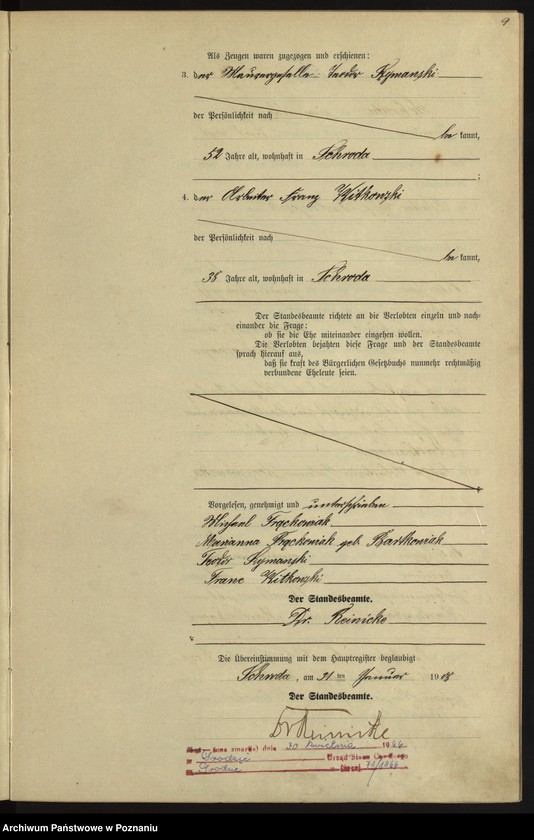 9
Als Zeugen waren zugezogen und erschienen:
3. der Maurergeselle Teodr Szymanski
der Persönlichkeit nach
be kannt,
52 Jahre alt, wohnhaft in Schroda
;
4. der Arbeiter Franz Witkowski
der Persönlichkeit nach
be kannt,
38 Jahre alt, wohnhaft in Schroda
Der Standesbeamte richtete an die Verlobten einzeln und nach-
einander die Frage:
ob sie die Ehe miteinander eingehen wollen.
Die Verlobten bejahten diese Frage und der Standesbeamte
sprach hierauf aus,
daß sie kraft des Bürgerlichen Gesetzbuchs nunmehr rechtmäßig
verbundene Eheleute seien.
Vorgelesen, genehmigt und unterschrieben
Michael Frąckowiak
Marianna Frąckowiak geb. Bartkowiak
Teodr Szymanski
Franc Witkowski
Der Standesbeamte.
Dr. Reinicke
Die Übereinstimmung mit dem Hauptregister beglaubigt
Schroda, am 31 ten Januar 1908
Der Standesbeamte.
Dr Reinicke
dnia 30 kwietnia 1966
w Środzie Urząd Stanu Cywilnego
Środa
Archiwum Państwowe w Poznaniu